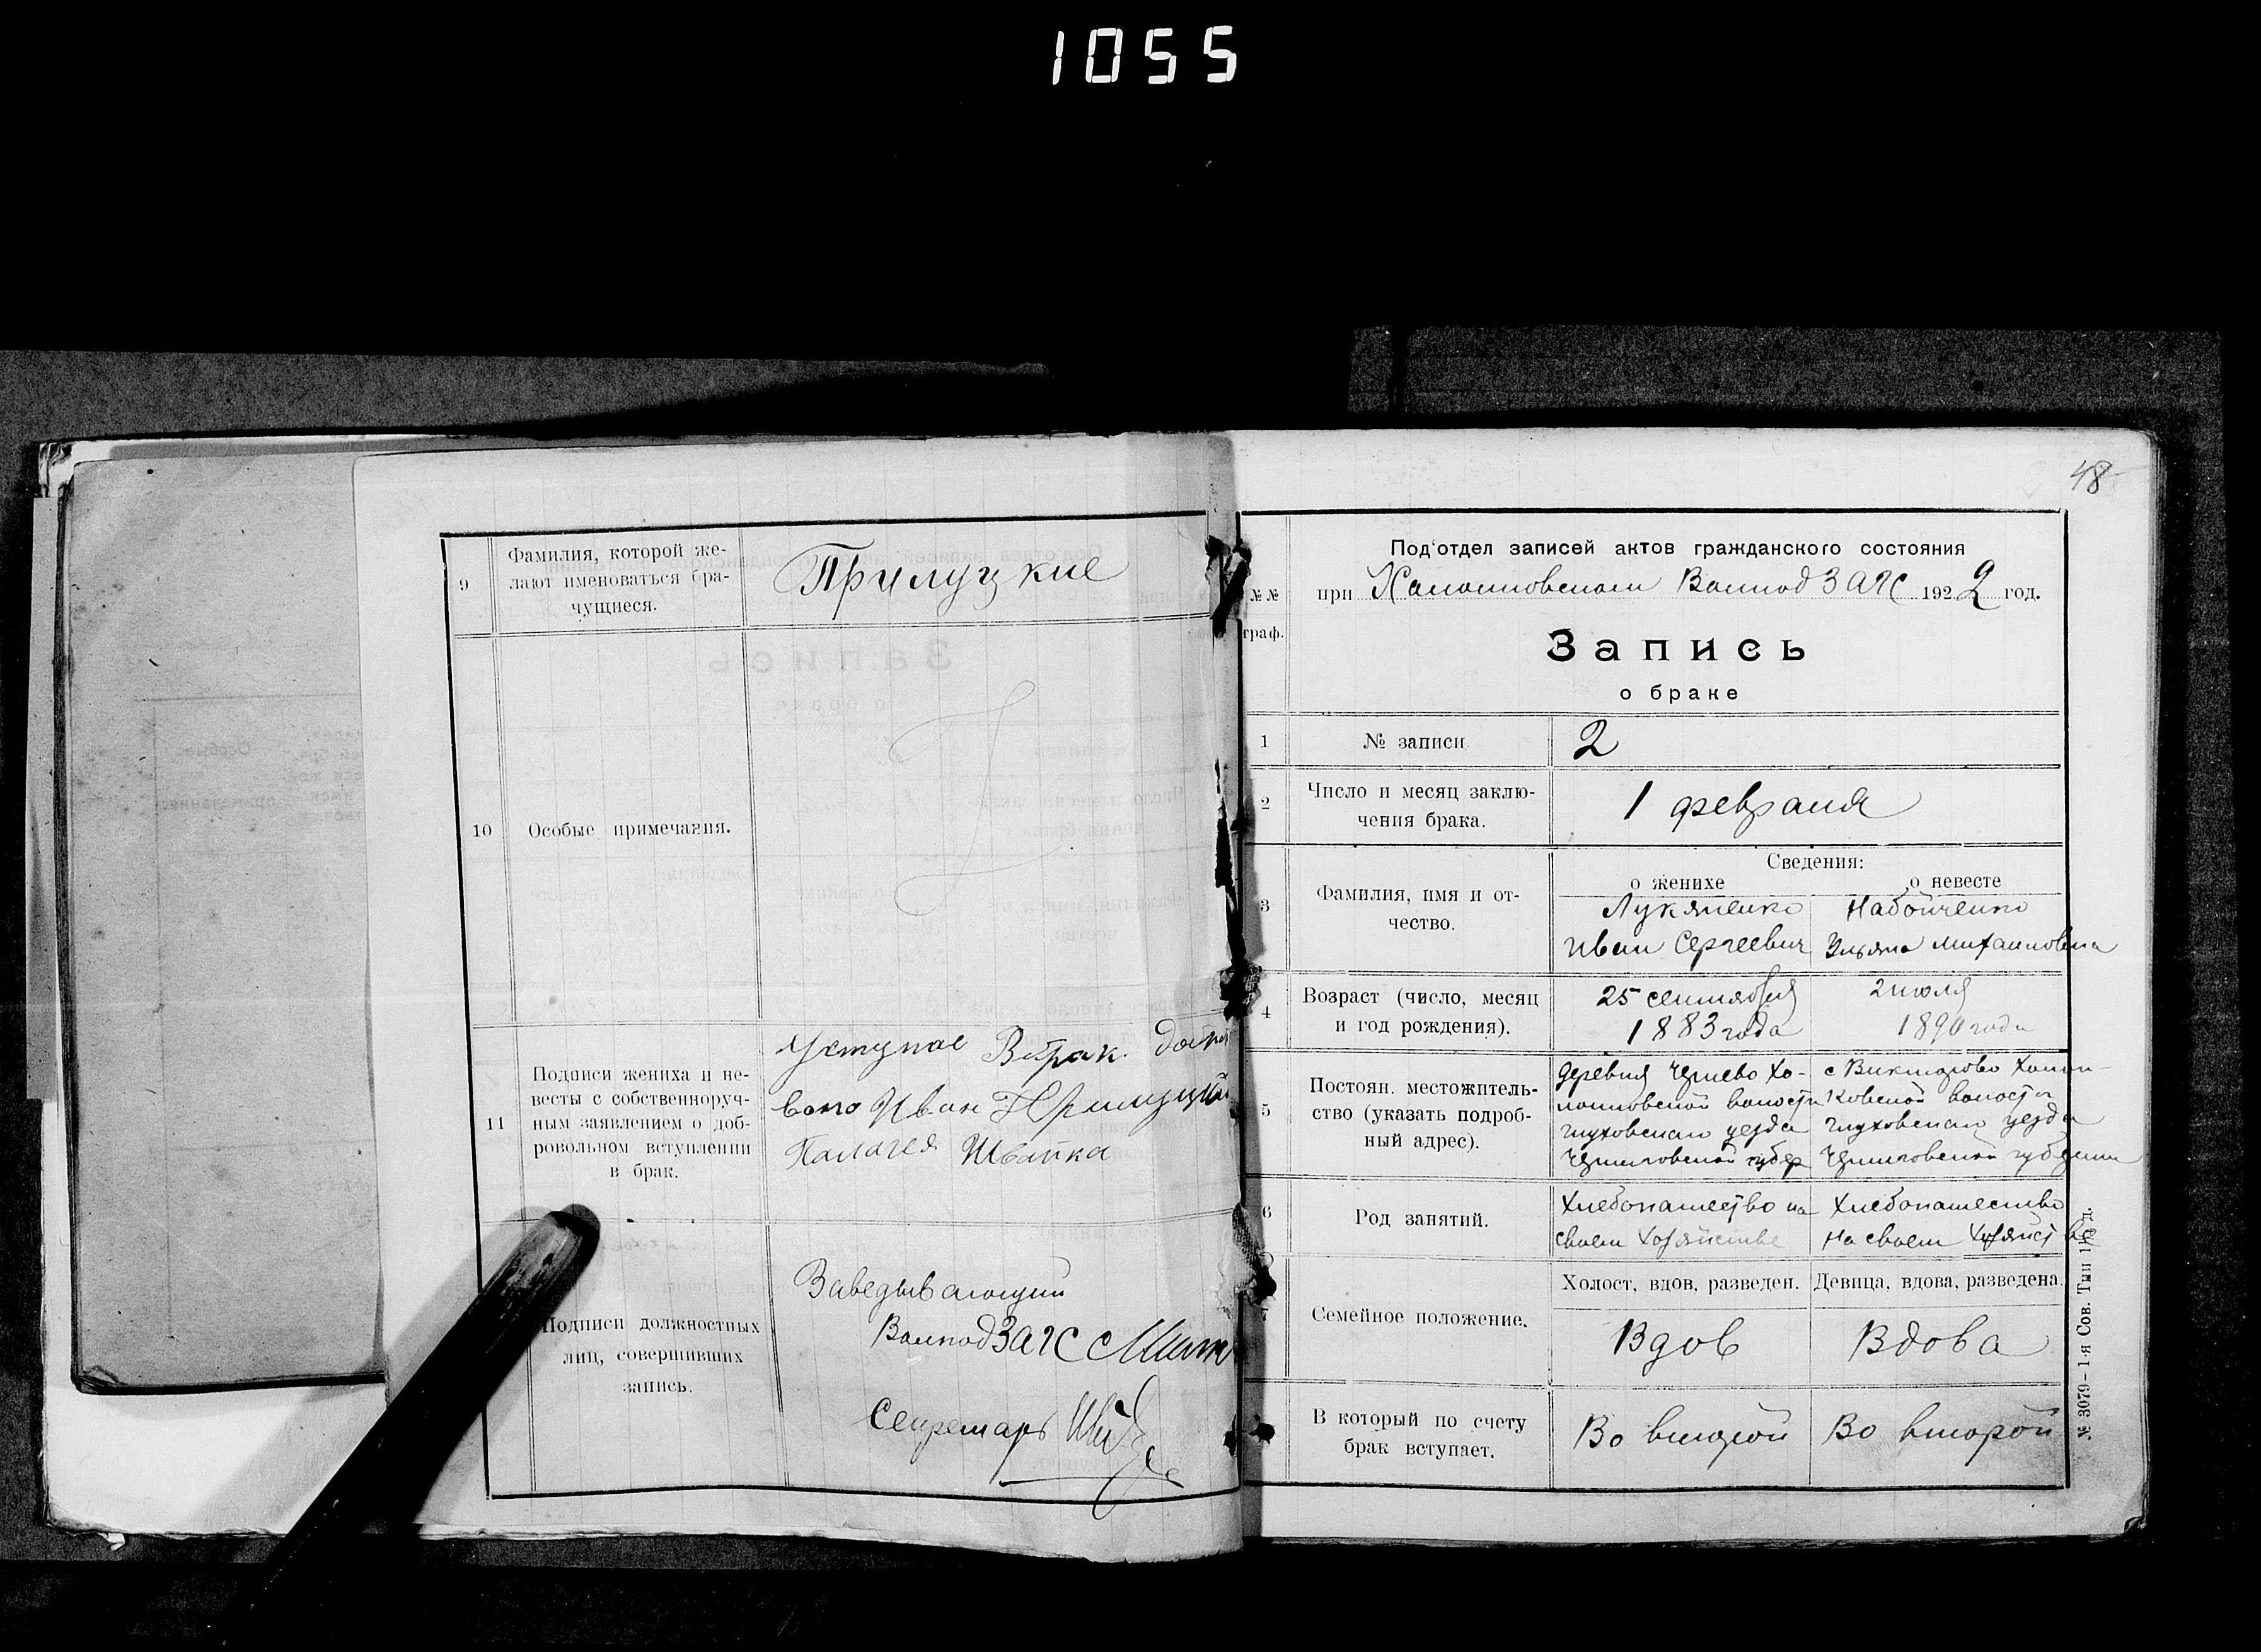 1055
9
Фамилия, которой же-
лают именоваться бра-
чущиеся.
Прилуцкие
10
Особые примечания.
11
Подписи жениха и не-
весты с собственноруч-
ным заявлением о доб-
ровольном вступлении
в брак.
Уступае В брак добро
вольно Иван Прилуцкий
Палагея Швайка
Подписи должностных
лиц, совершивших
запись.
Заведывающий
ВолподЗАГС
Секретарь
48
№№
граф.
Под'отдел записей актов гражданского состояния
при ВолподЗАГС 1922 год.
Запись
о браке
1
№ записи
2
2
Число и месяц заклю-
чения брака.
1 февраля
3
Фамилия, имя и от-
чество.
Сведения:
о женихе
о невесте
Лукяненко
Иван Сергеевич
Набойченко
Ульяна Михайловна
4
Возраст (число, месяц
и год рождения).
25 сентября
1883 года
2 июля
1890 года
5
Постоян. местожитель-
ство (указать подроб-
ный адрес).
деревня Чернево Хо-
волости
глуховского уезда
Черниговской губер
с Викторово
ковской волости
глуховского уезда
Черниговской губернии
6
Род занятий.
Хлебопашество на
своем хозяйстве
Хлебопашество
на своем хозяйств
7
Семейное положение.
Холост, вдов, разведен.
Девица, вдова, разведена.
Вдов
Вдова
В который по счету
брак вступает.
Во второй
Во второй
№ 3079-1-я Сов. Тип